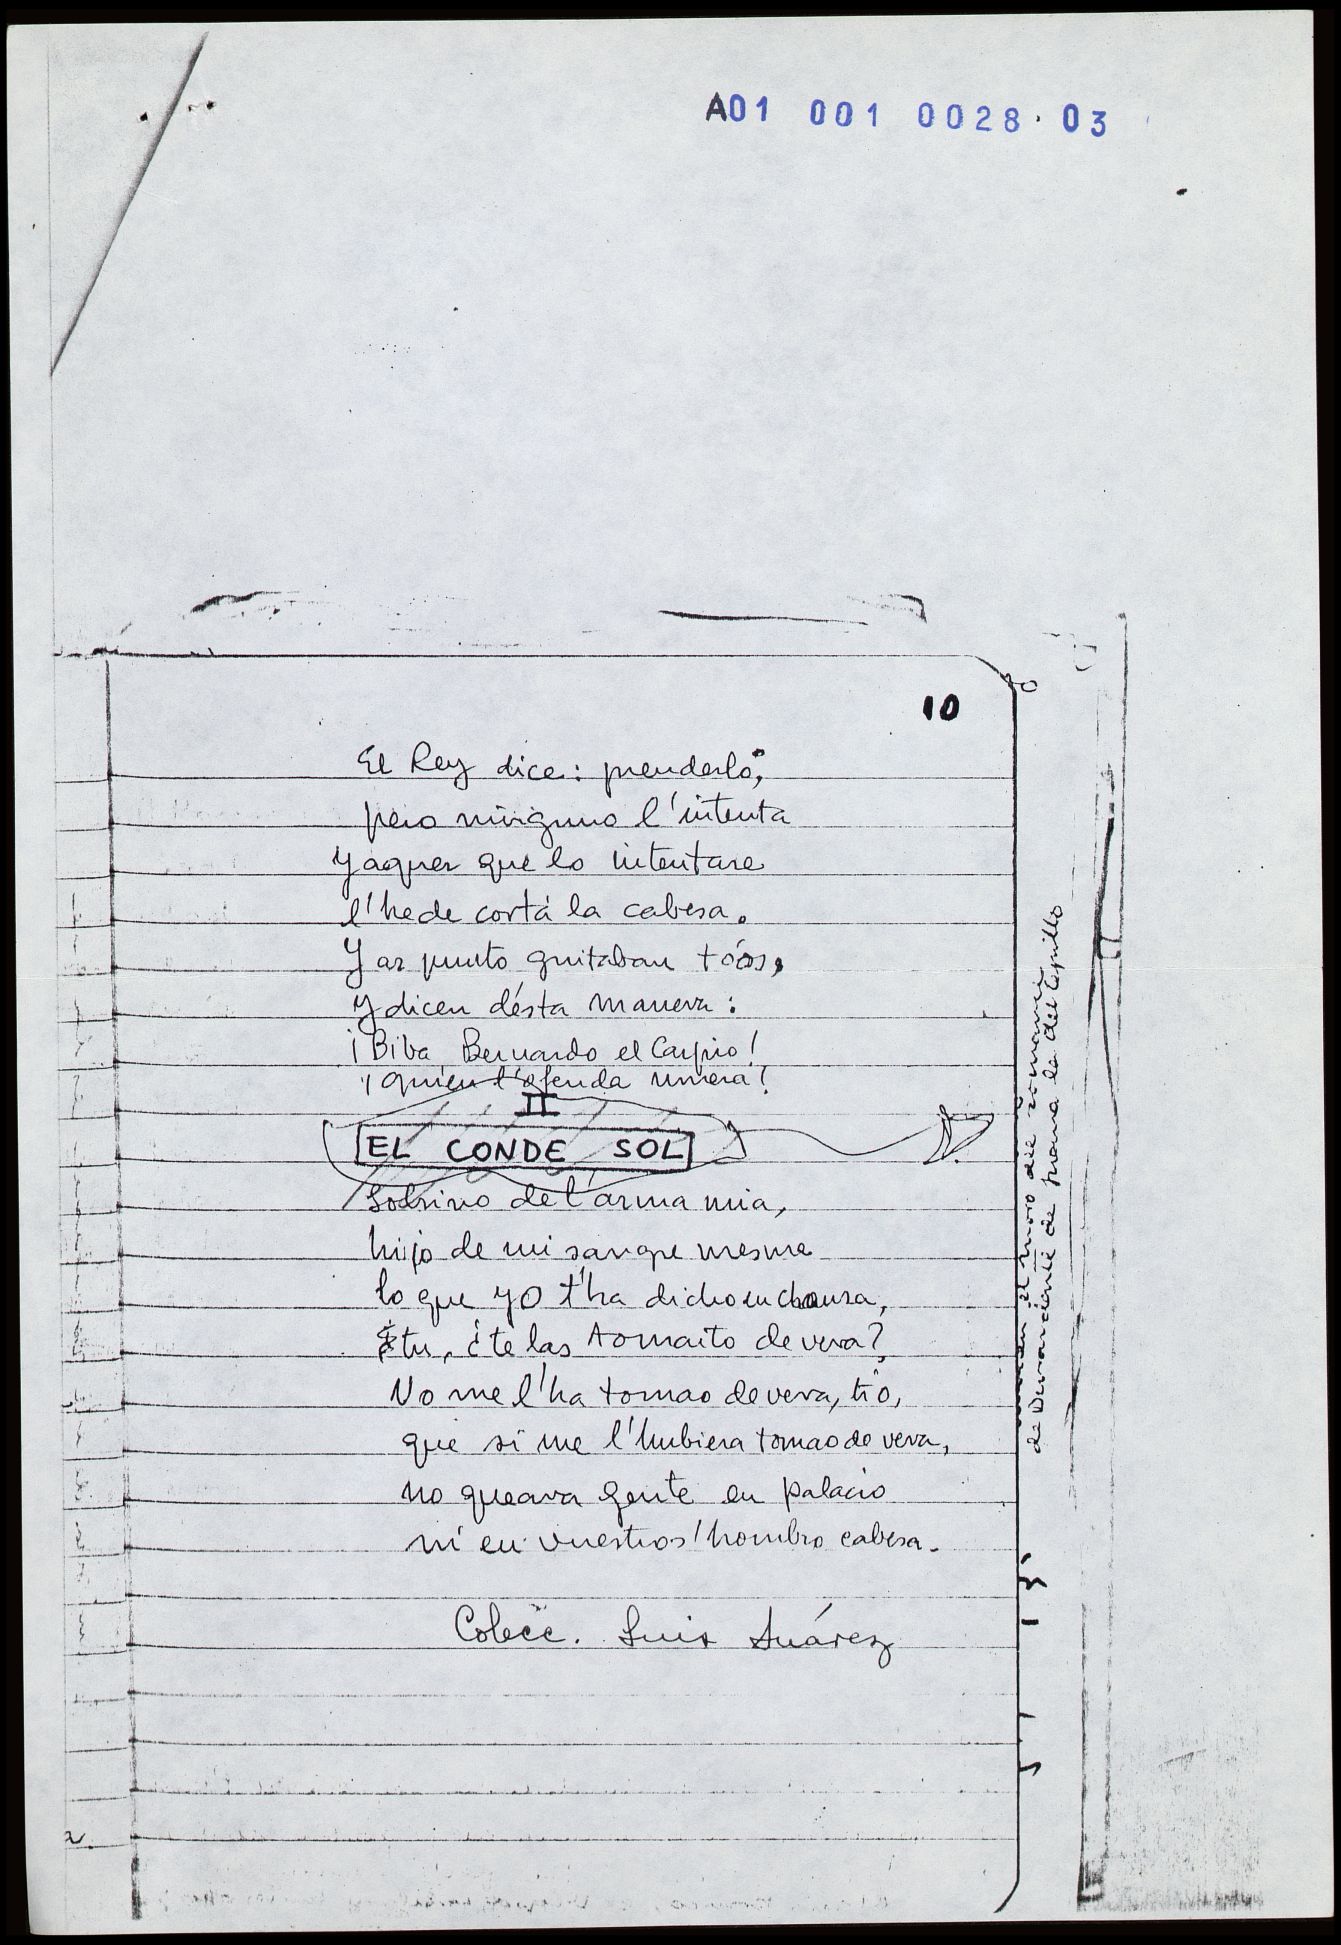 A01 001 0028·03
10
El Rey dice: prenderlo;
pero ninguno l'intenta
Y aquer que lo intentare
l'hede cortá la cabesa.
Y ar punto gritaban tóos,
Y dicen désta manera:
¡Biba Bernardo el Carpio!
¡quién l'ofenda muera!
II
EL CONDE SOL
Sobrino de l'arma mia,
hijo de mi sangre mesme
lo que yo t'ha dicho en chansa,
tu, ¿te las tomaito de vera?
No me l'ha tomao de vera, tío,
que si me l'hubiera tomao de vera,
no queava gente en palacio
ni en vuestros'hombro cabesa.
Colecc. Luis Suárez